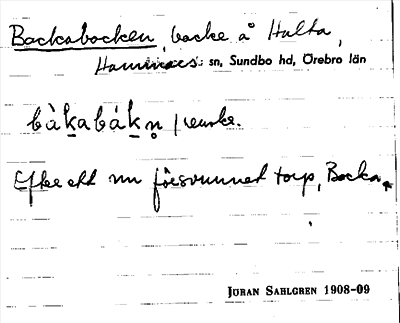 Backabacken, backe å Hulta,
Hammars: sn, Sundbo hd, Örebro län
bàkabákn̥
Efter ett nu försvunnet torp, Backa.
JÖRAN SAHLGREN 1908-09